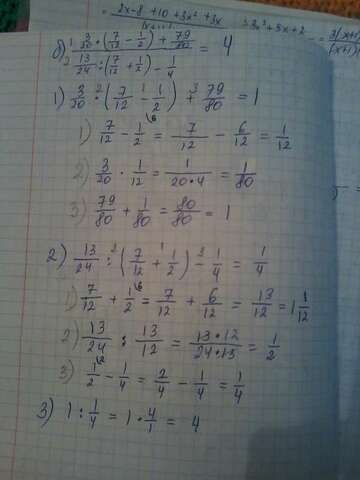 2x-8+10+3x²+3x
3x²+5x+2
б) 3/20 · (7/12 - 1/2) + 79/80
13/24 : (7/12 + 1/2) - 1/4
= 4
1) 3/20 · (7/12 - 1/2) + 79/80 = 1
1) 7/12 - 1/2 = 7/12 - 6/12 = 1/12
2) 3/20 · 1/12 = 1/20·4 = 1/80
3) 79/80 + 1/80 = 80/80 = 1
2) 13/24 : (7/12 + 1/2) - 1/4 = 1/4
1) 7/12 + 1/2 = 7/12 + 6/12 = 13/12 = 1 1/12
2) 13/24 : 13/12 = 13·12/24·13 = 1/2
3) 1/2 - 1/4 = 2/4 - 1/4 = 1/4
3) 1 : 1/4 = 1 · 4/1 = 4